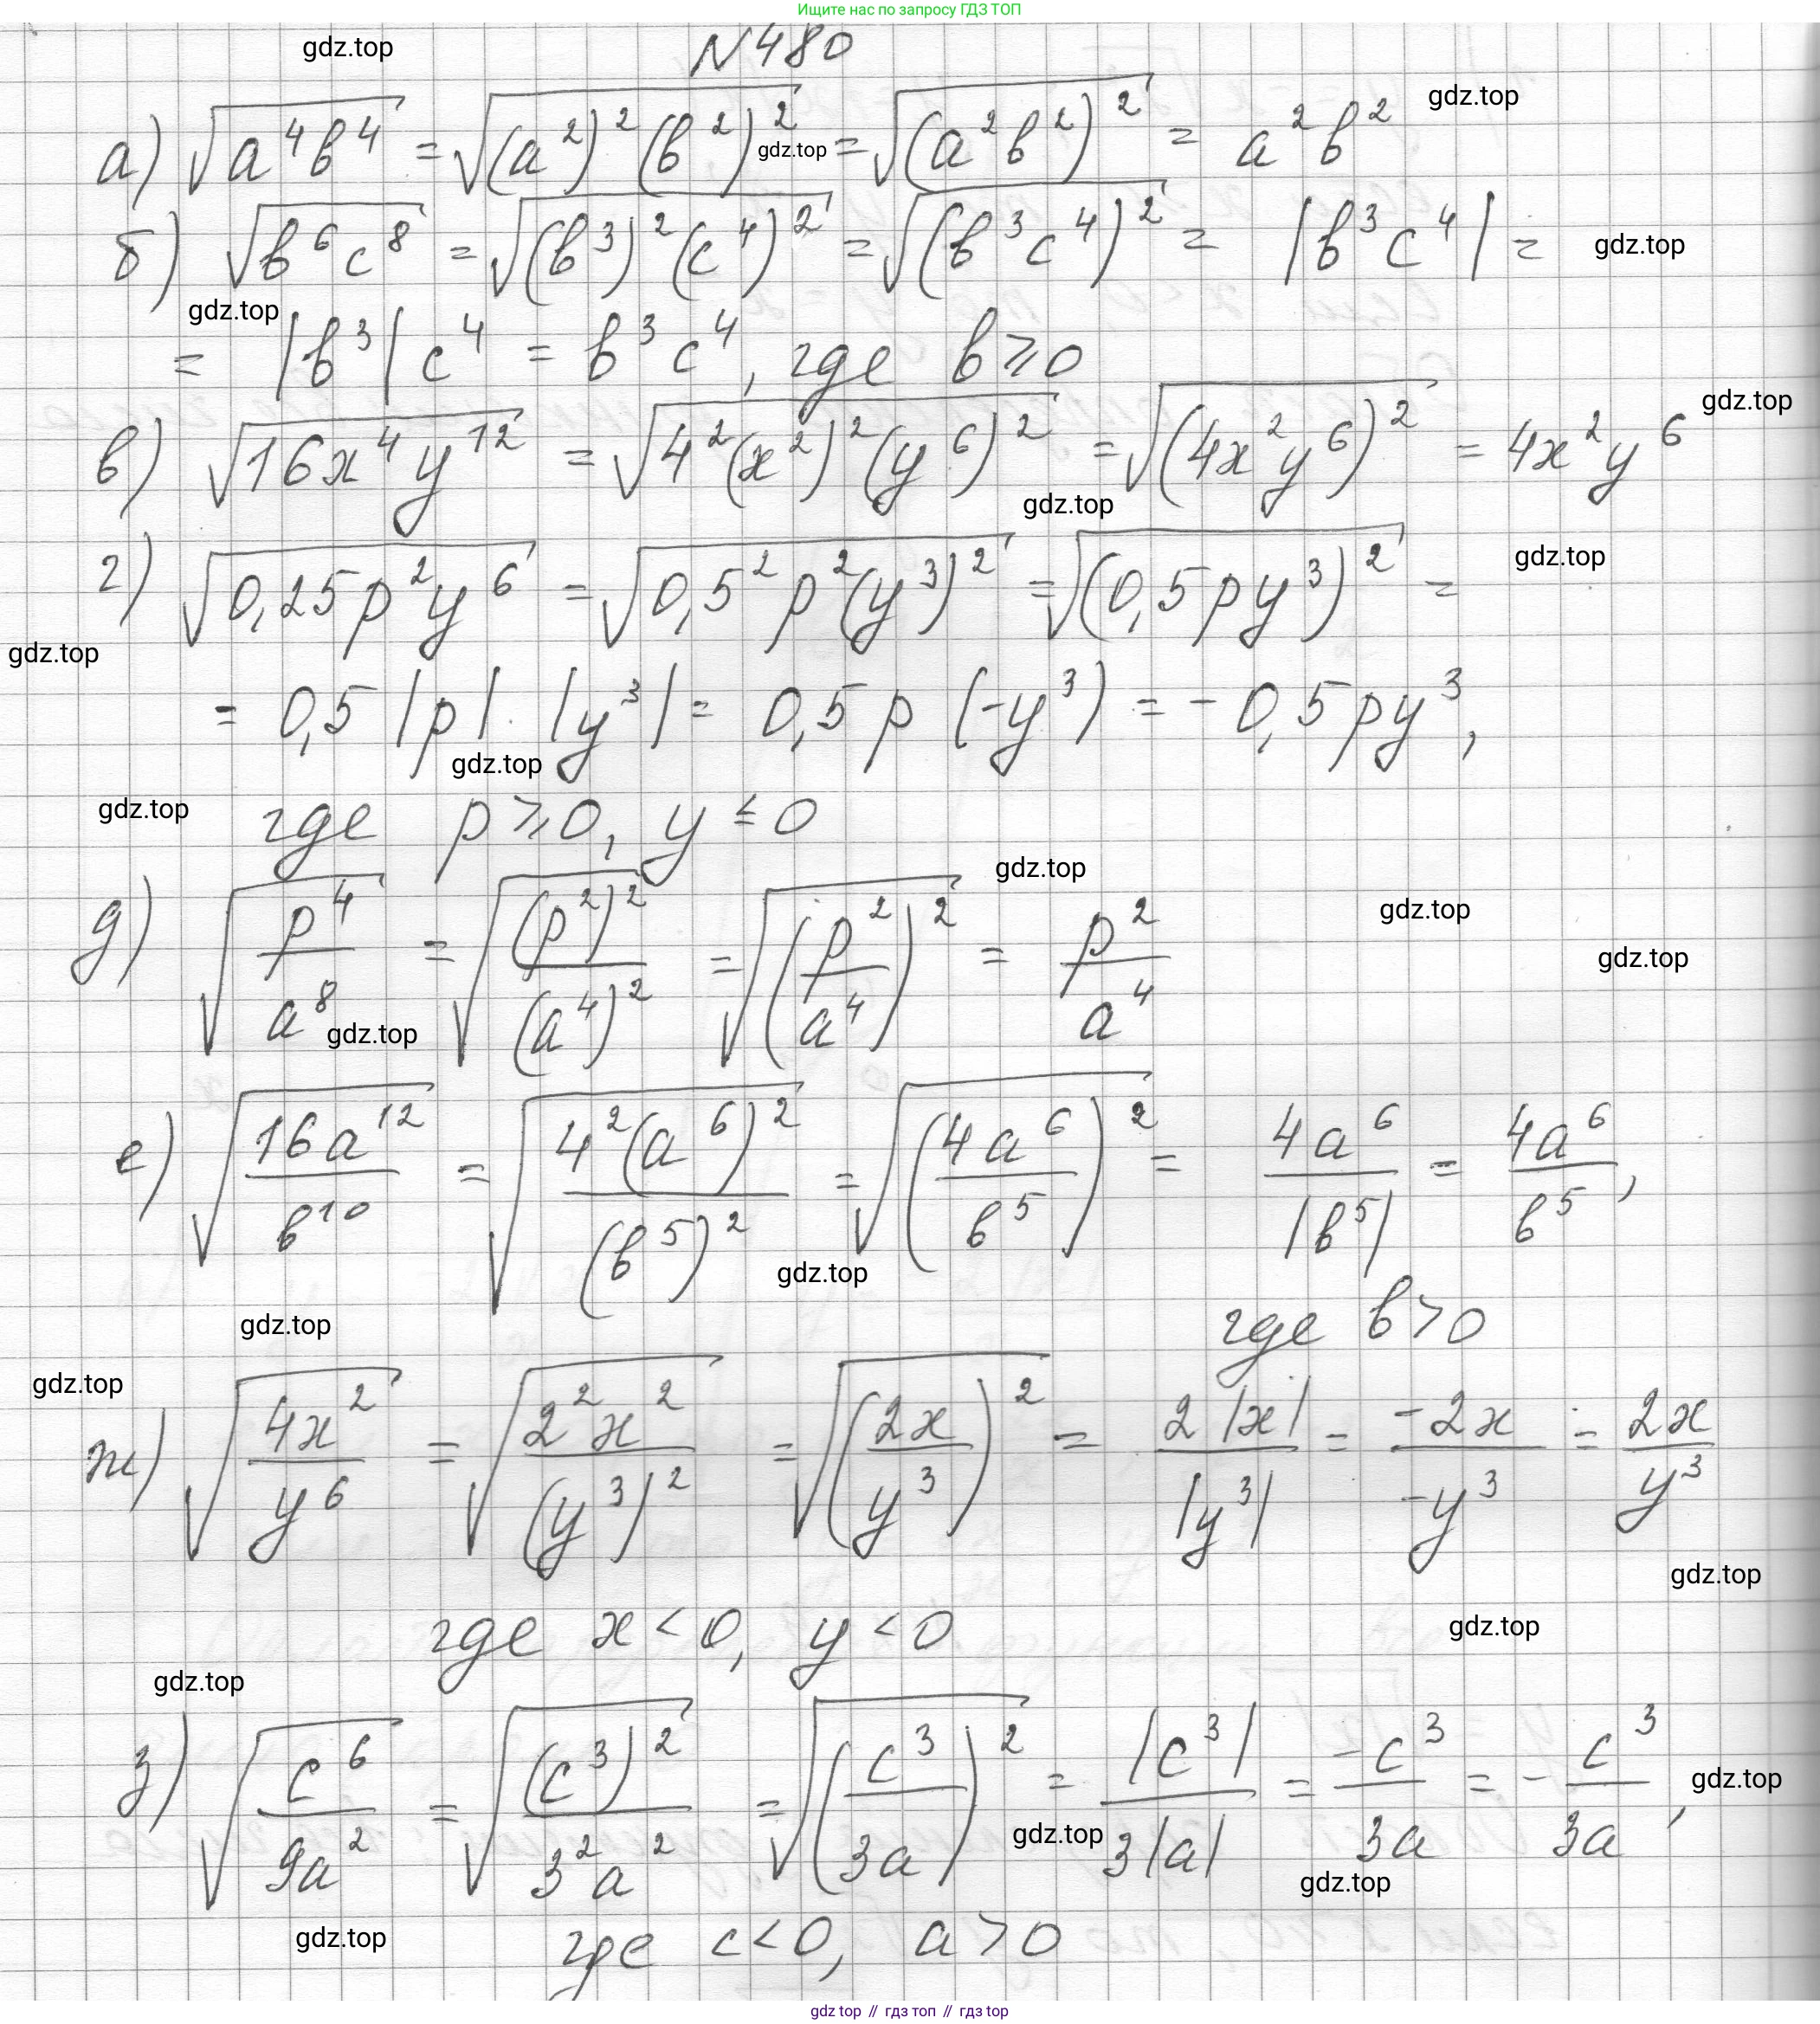 Ищите нас по запросу ГДЗ ТОП
gdz.top
N480
gdz.top
а) √(a⁴b⁴) = √((a²)²(b²)²) = √((a²b²)²) = a²b²
gdz.top
б) √(b⁶c⁸) = √((b³)²(c⁴)²) = √((b³c⁴)²) = |b³c⁴| =
gdz.top
gdz.top
= |b³|c⁴ = b³c⁴, где b⩾0
gdz.top
в) √(16x⁴y¹²) = √(4²(x²)²(y⁶)²) = √((4x²y⁶)²) = 4x²y⁶
gdz.top
gdz.top
г) √(0,25p²y⁶) = √(0,5²p²(y³)²) = √((0,5py³)²) =
gdz.top
= 0,5|p|·|y³| = 0,5p(-y³) = -0,5py³,
gdz.top
gdz.top
где p⩾0, y≤0
gdz.top
gdz.top
д) √(p⁴/a⁸) = √((p²)²/(a⁴)²) = √((p²/a⁴)²) = p²/a⁴
gdz.top
gdz.top
е) √(16a¹²/b¹⁰) = √(4²(a⁶)²/(b⁵)²) = √((4a⁶/b⁵)²) = 4a⁶/|b⁵| = 4a⁶/b⁵,
gdz.top
где b>0
gdz.top
gdz.top
ж) √(4x²/y⁶) = √(2²x²/(y³)²) = √((2x/y³)²) = 2|x|/|y³| = -2x/-y³ = 2x/y³
gdz.top
где x<0, y<0
gdz.top
gdz.top
з) √(c⁶/9a²) = √((c³)²/3²a²) = √((c³/3a)²) = |c³|/3|a| = -c³/3a = - c³/3a,
gdz.top
gdz.top
gdz.top
где c<0, a>0
gdz.top
gdz top // гдз топ // гдз top